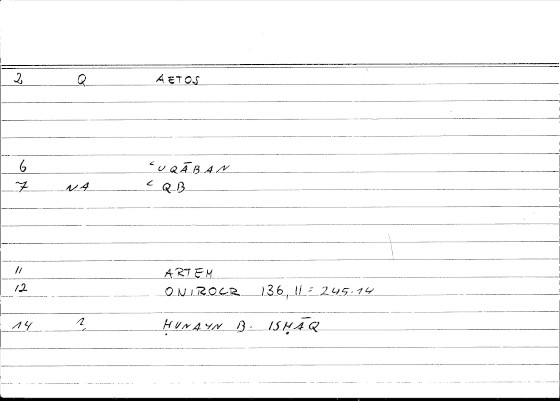 2 Q AETOS
6 ʿUQĀBAN
7 NA ʿQB
11 ARTEM
12 ONIROCR 136,11 = 245.14
14 2 ḤUNAYN B. ISḤĀQ